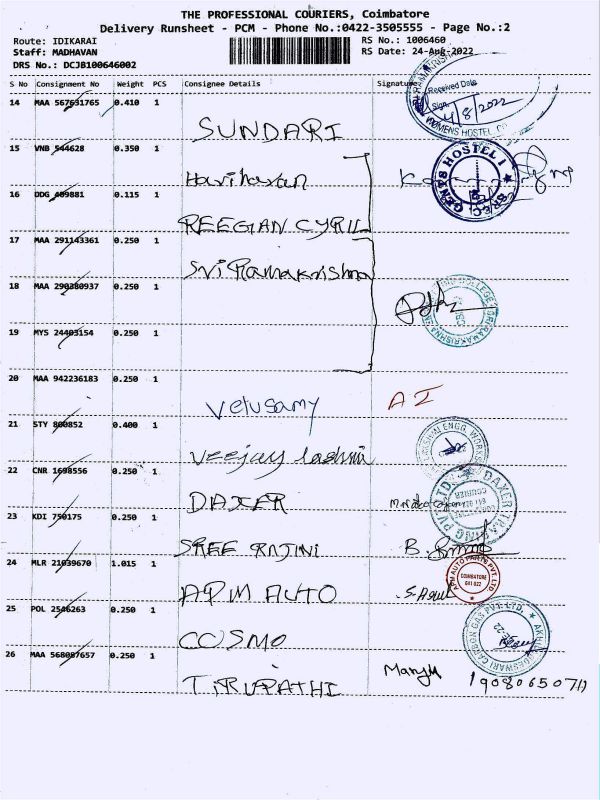 THE PROFESSIONAL COURIERS, Coimbatore
Delivery Runsheet - PCM - Phone No.:0422-3505555 - Page No.:2
Route: IDIKARAI
RS No.: 1006460
Staff: MADHAVAN
RS Date: 24-Aug-2022
DRS No.: DCJB100646002
S No Consignment No Weight PCS Consignee Details Signature
14 MAA 567631765 0.410 1
Received Date
Sign.
4/8/2022
WOMENS HOSTEL
SUNDARI
15 VNB 544628 0.350 1
GENTS HOSTEL I
SREC
Hariharan
16 DDG 409881 0.115 1
REEGAN CYRIL
17 MAA 291143361 0.250 1
Sri Ramakrishna
18 MAA 290380937 0.250 1
19 MYS 24403154 0.250 1
20 MAA 942236183 0.250 1
Velusamy AI
21 STY 800852 0.400 1
Veejay lashmi
22 CNR 1698556 0.250 1
DAXER
23 KDI 750175 0.250 1
SREE RAJINI B.
24 MLR 21039670 1.015 1
APM AUTO
APM AUTO PARTS PVT. LTD.
COIMBATORE
641 022
25 POL 2546263 0.250 1
COSMO
CARBON GAS PVT.LTD.
26 MAA 568087657 0.250 1
TIRUPATHI